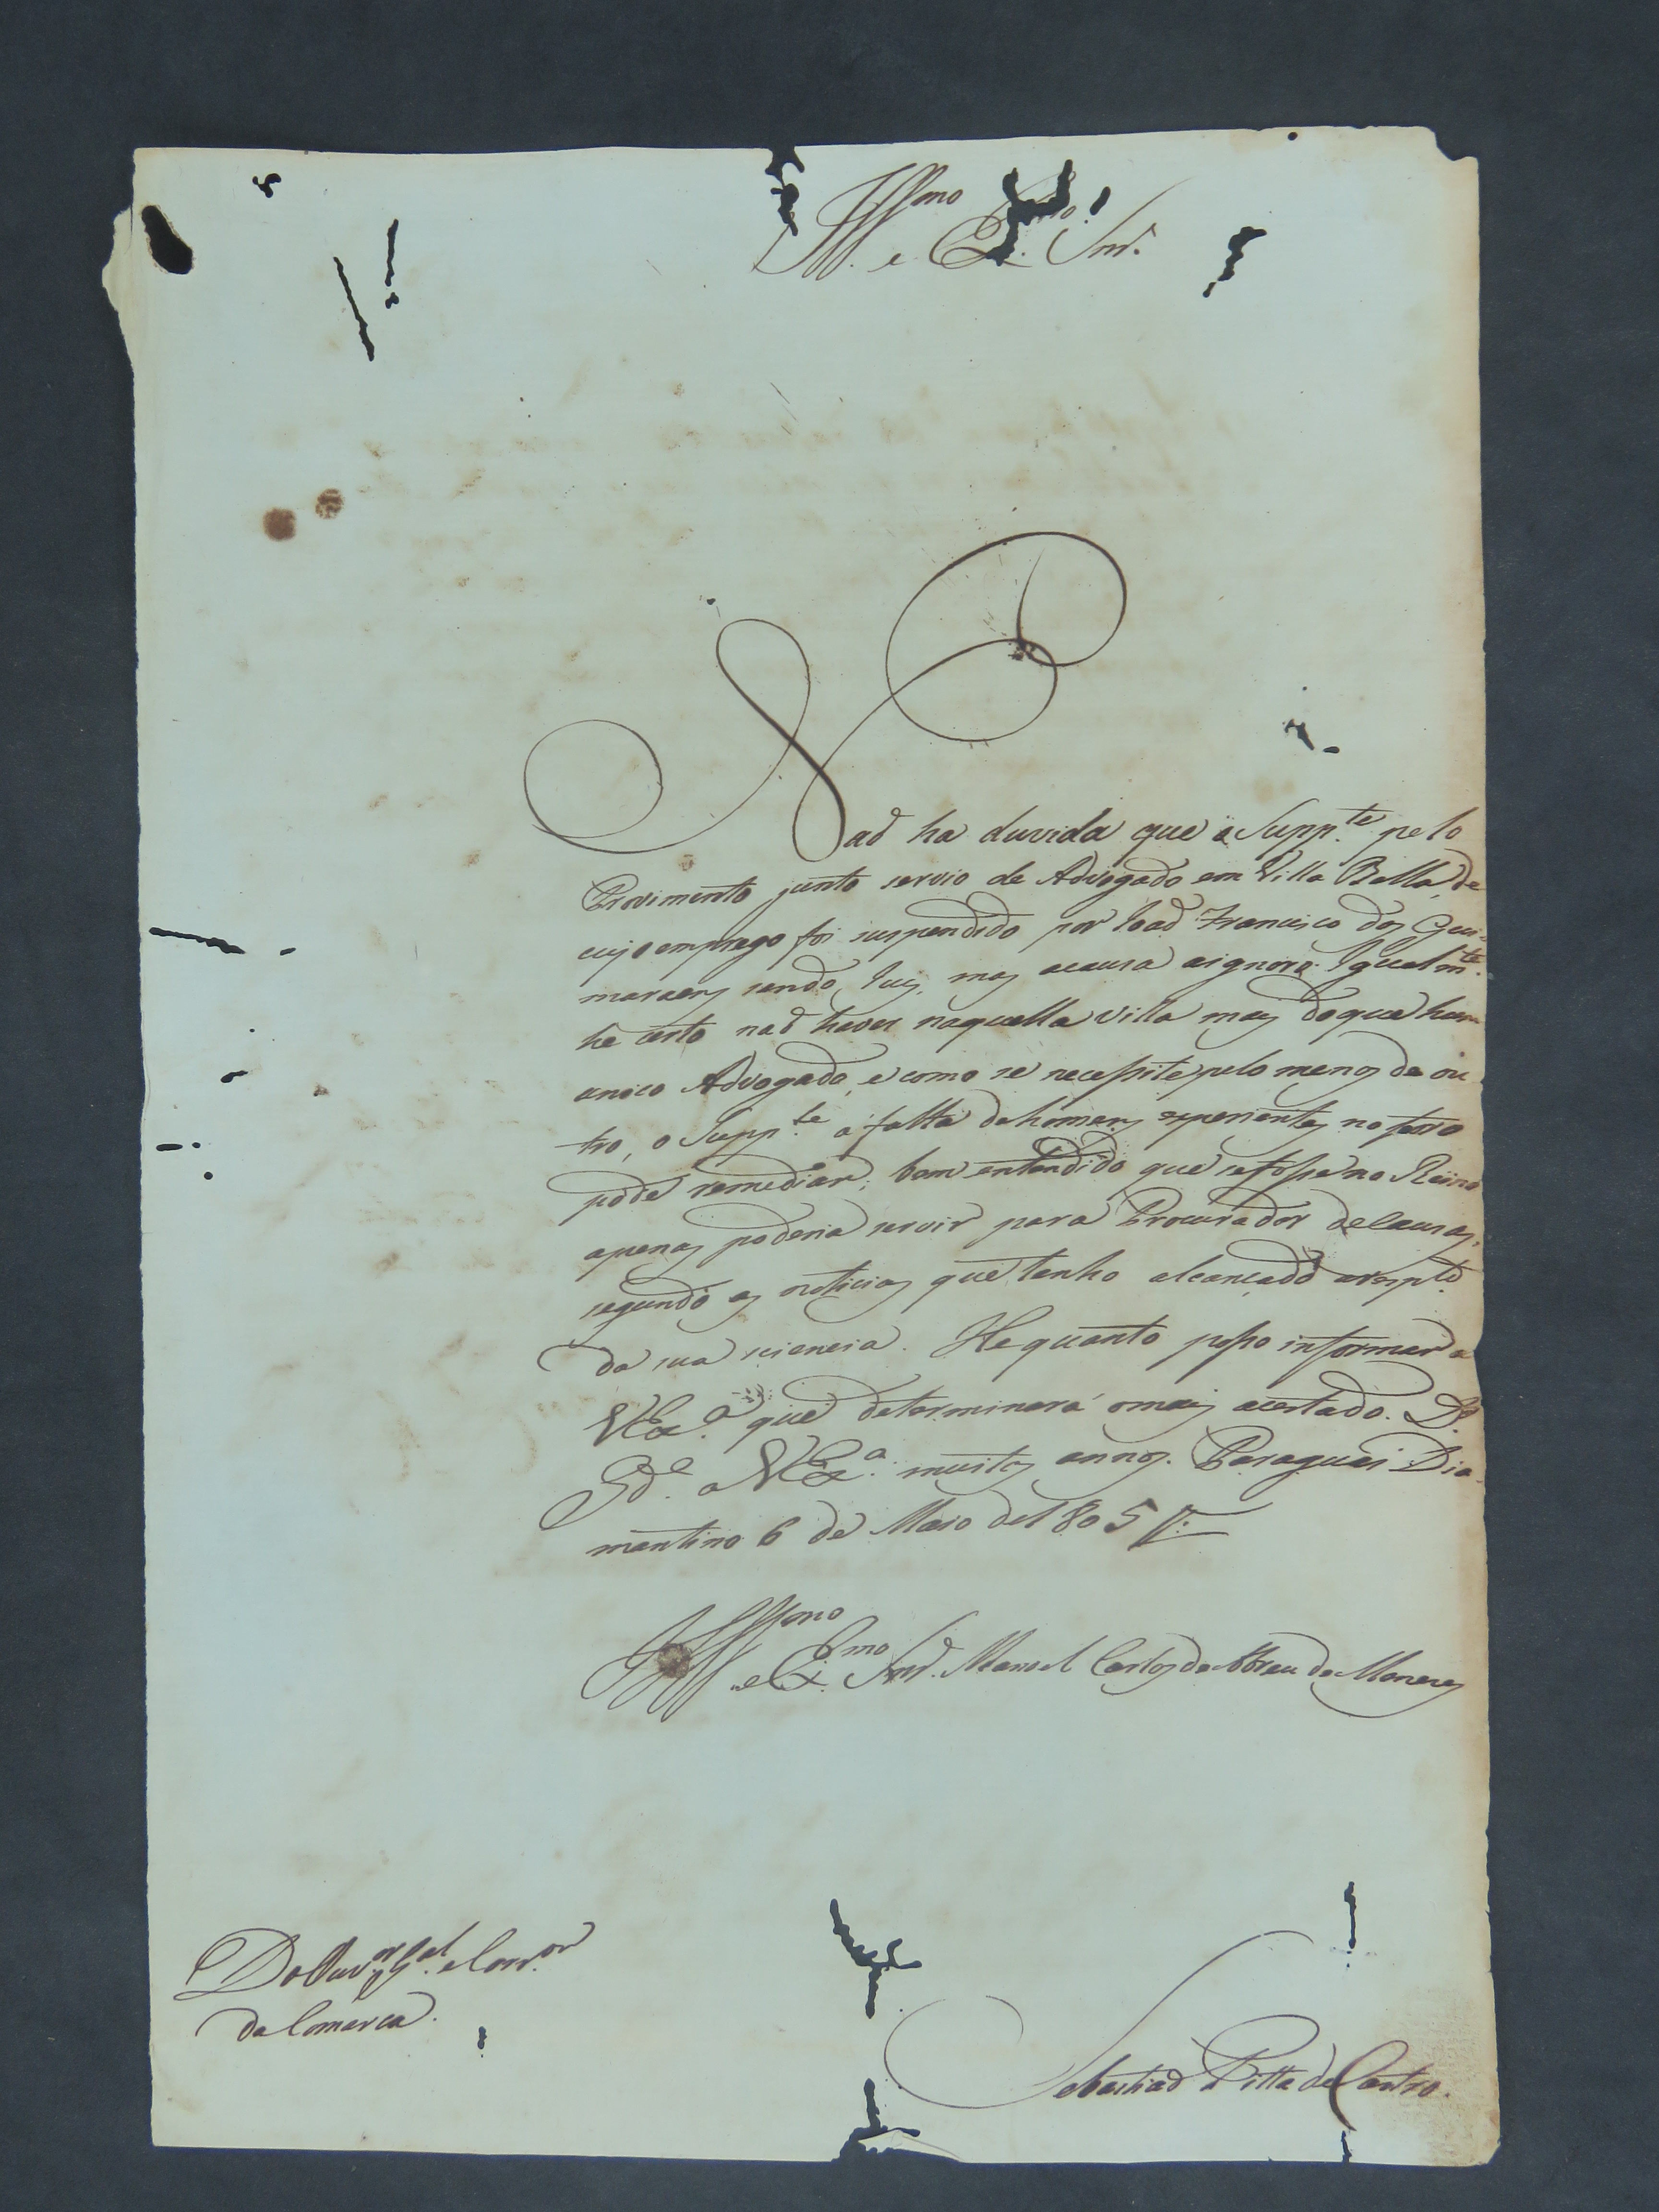 Illmo. e Exmo. Snr.
Naõ ha duvida que o Supp.te pelo
Provimento junto servio de Advogado em Villa Bella, de
cujo emprego foi suspendido por Joaõ Francisco dos Gui-
maraens sendo Juiz, mas acausa aignoro. Igualm.te
he certo naõ haver naquella Villa mais doque hum
unico Advogado, e como se necessite pelo menos de ou-
tro, o Supp.te a falta dehomens experientes no foro
pode remediar; bem entendido que sefosse no Reino
apenas poderia servir para Procurador deCausas,
segundo as noticias que tenho alcançado arespto.
da sua sciencia. He quanto posso informar a
VExa. que determinará omais acertado. D.s
Gde. a VExa. muitos annos. Paraguai Dia-
mantino 6 de Maio de1805
Illmo. e Exmo. Snr. Manoel Carlos de Abreu de Menezes
DoOuv.or G.al eCorr.or
da Comarca.
Sebastiaõ Pitta de Castro.